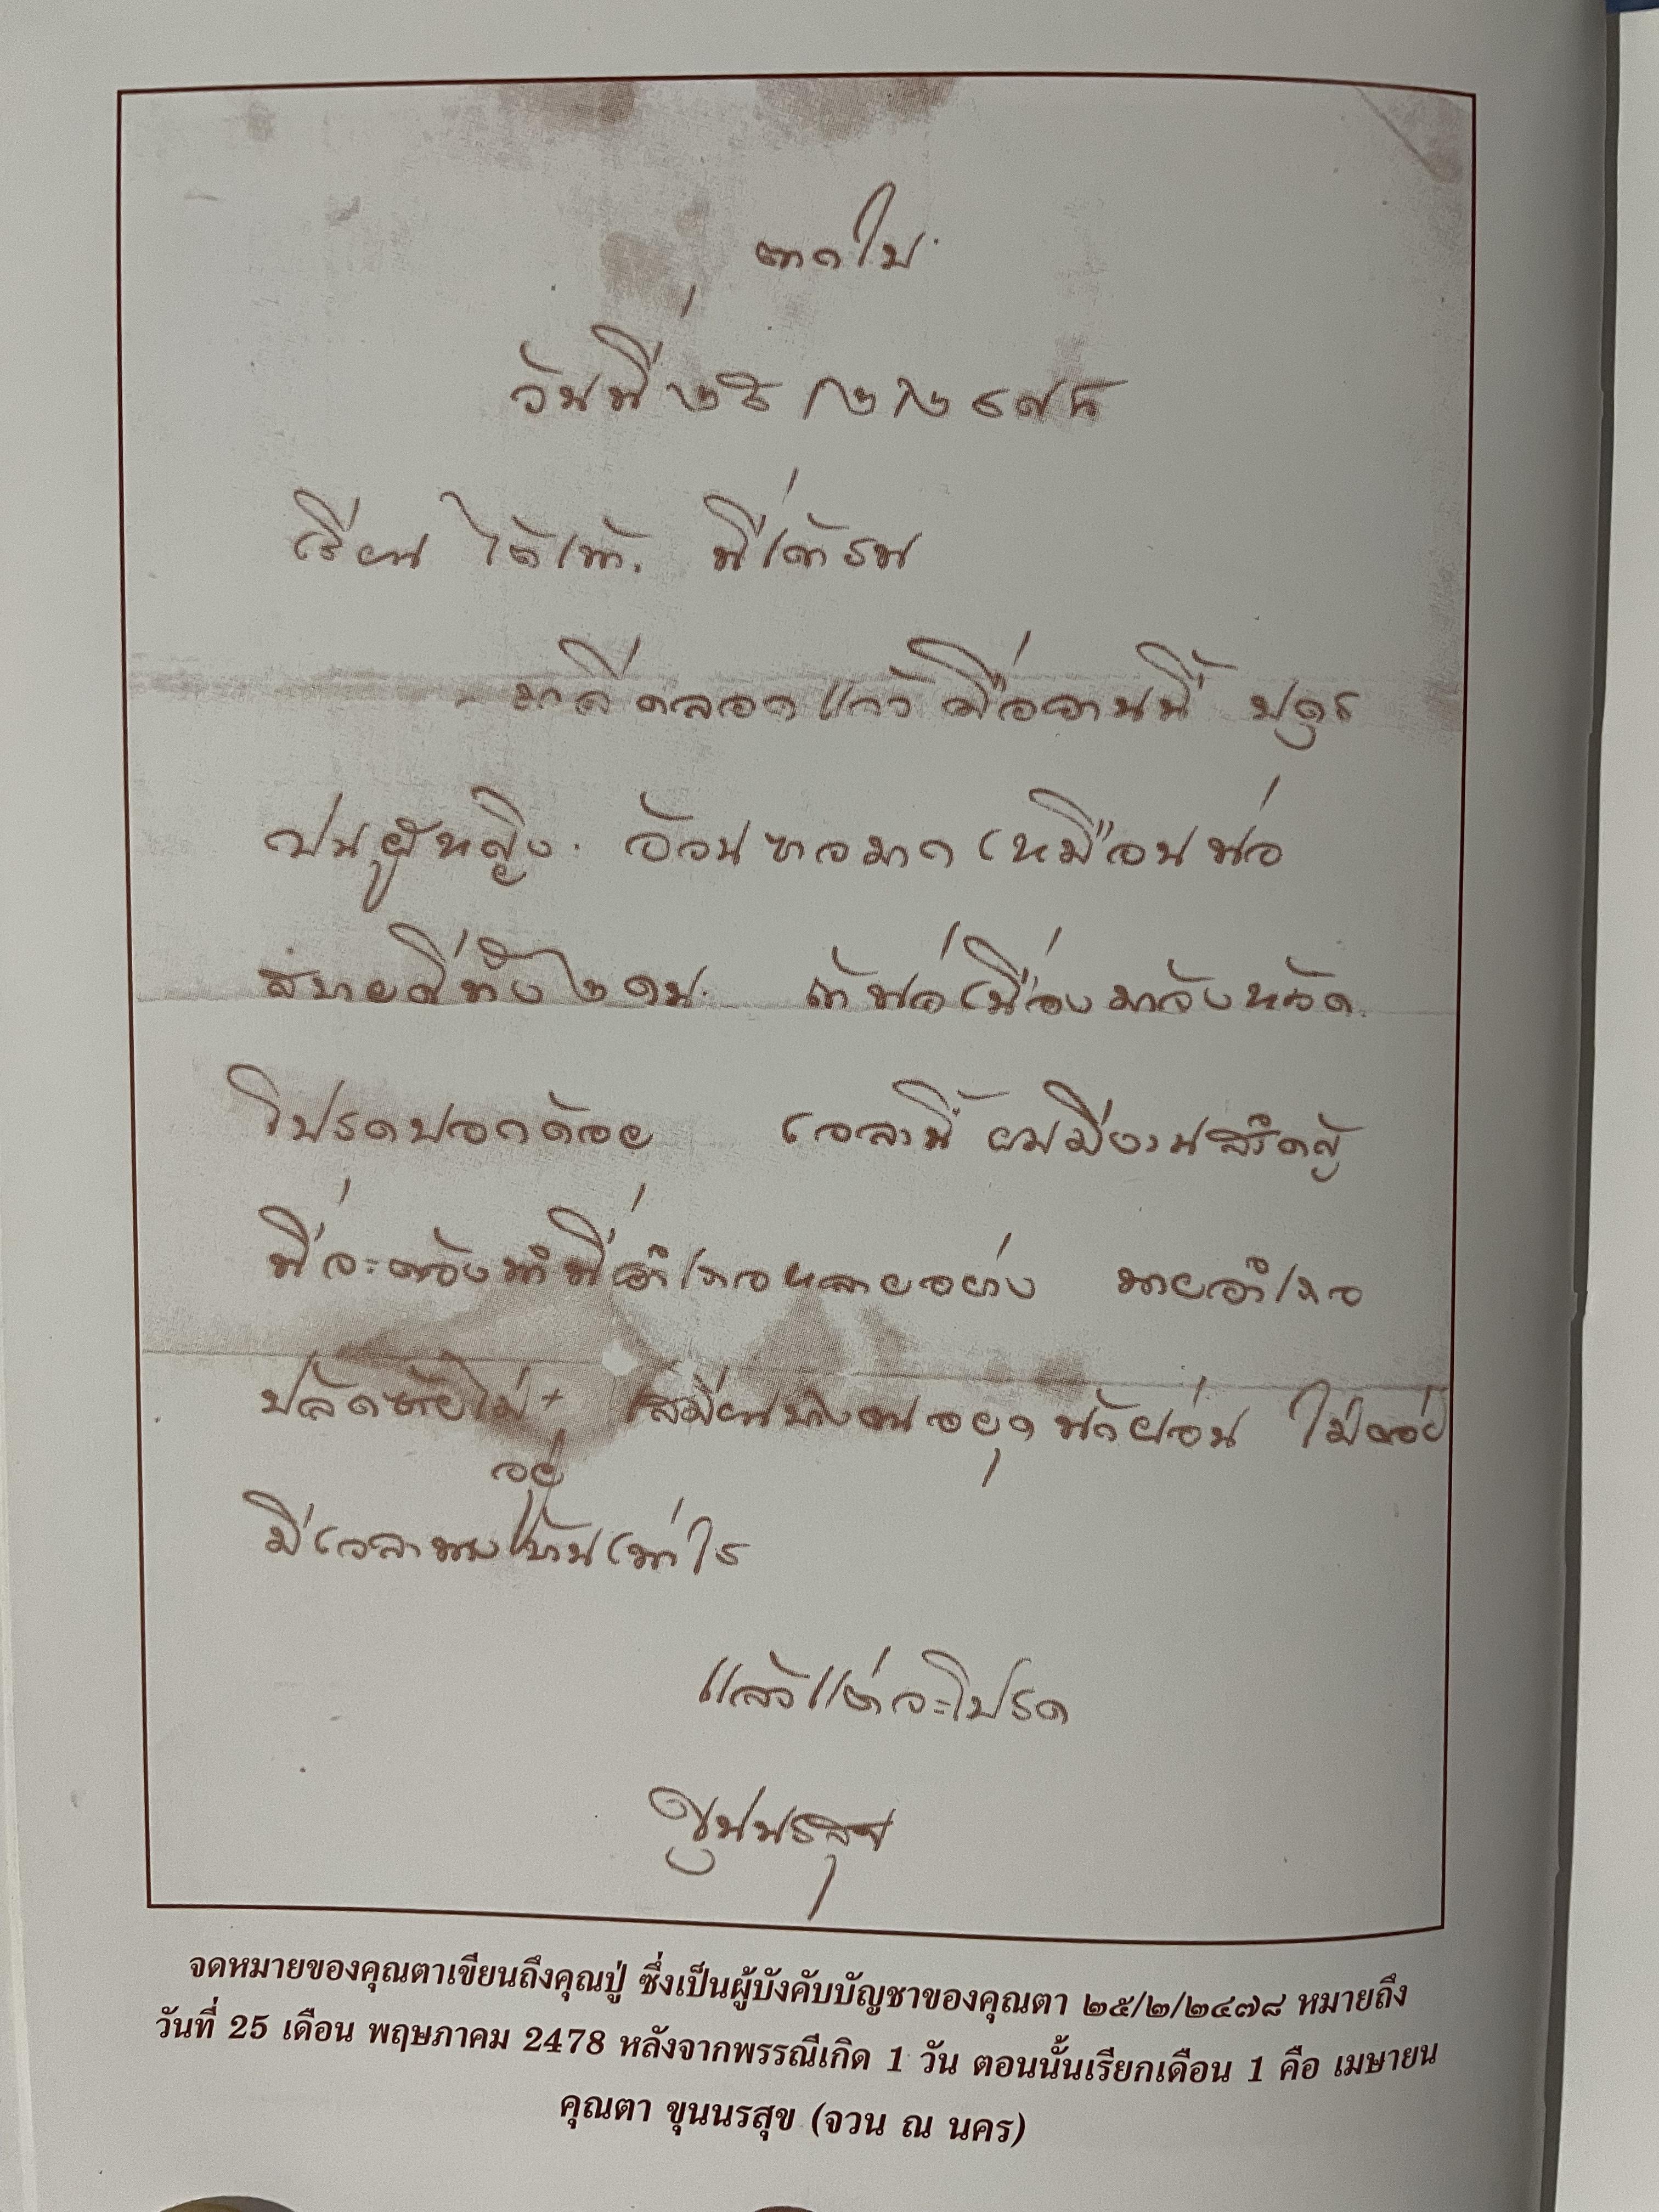 ตากใบ
วันที่ ๒๕/๒/๒๔๗๘
เรียน ใต้เท้า ที่เคารพ
มาลีคลอดแล้วเมื่อวานนี้ บุตร
เปนผู้หญิง อ้วนขาวมากเหมือนพ่อ
สบายดีทั้ง ๒ คน ถ้าพ่อเนื่องมาจังหวัด
โปรดบอกด้วย เวลานี้ผมมีงานสำคัญ
ที่จะต้องทำที่อำเภอหลายอย่าง นายอำเภอ
ปลัด เสมียนบางคนอยุดพักผ่อน ไม่ค่อย
อยู่
มีเวลา บ้านเท่าไร
แล้วแต่จะโปรด
ขุนนรสุข
จดหมายของคุณตาเขียนถึงคุณปู่ ซึ่งเป็นผู้บังคับบัญชาของคุณตา ๒๕/๒/๒๔๗๘ หมายถึง
วันที่ 25 เดือน พฤษภาคม 2478 หลังจากพรรณีเกิด 1 วัน ตอนนั้นเรียกเดือน 1 คือ เมษายน
คุณตา ขุนนรสุข (จวน ณ นคร)